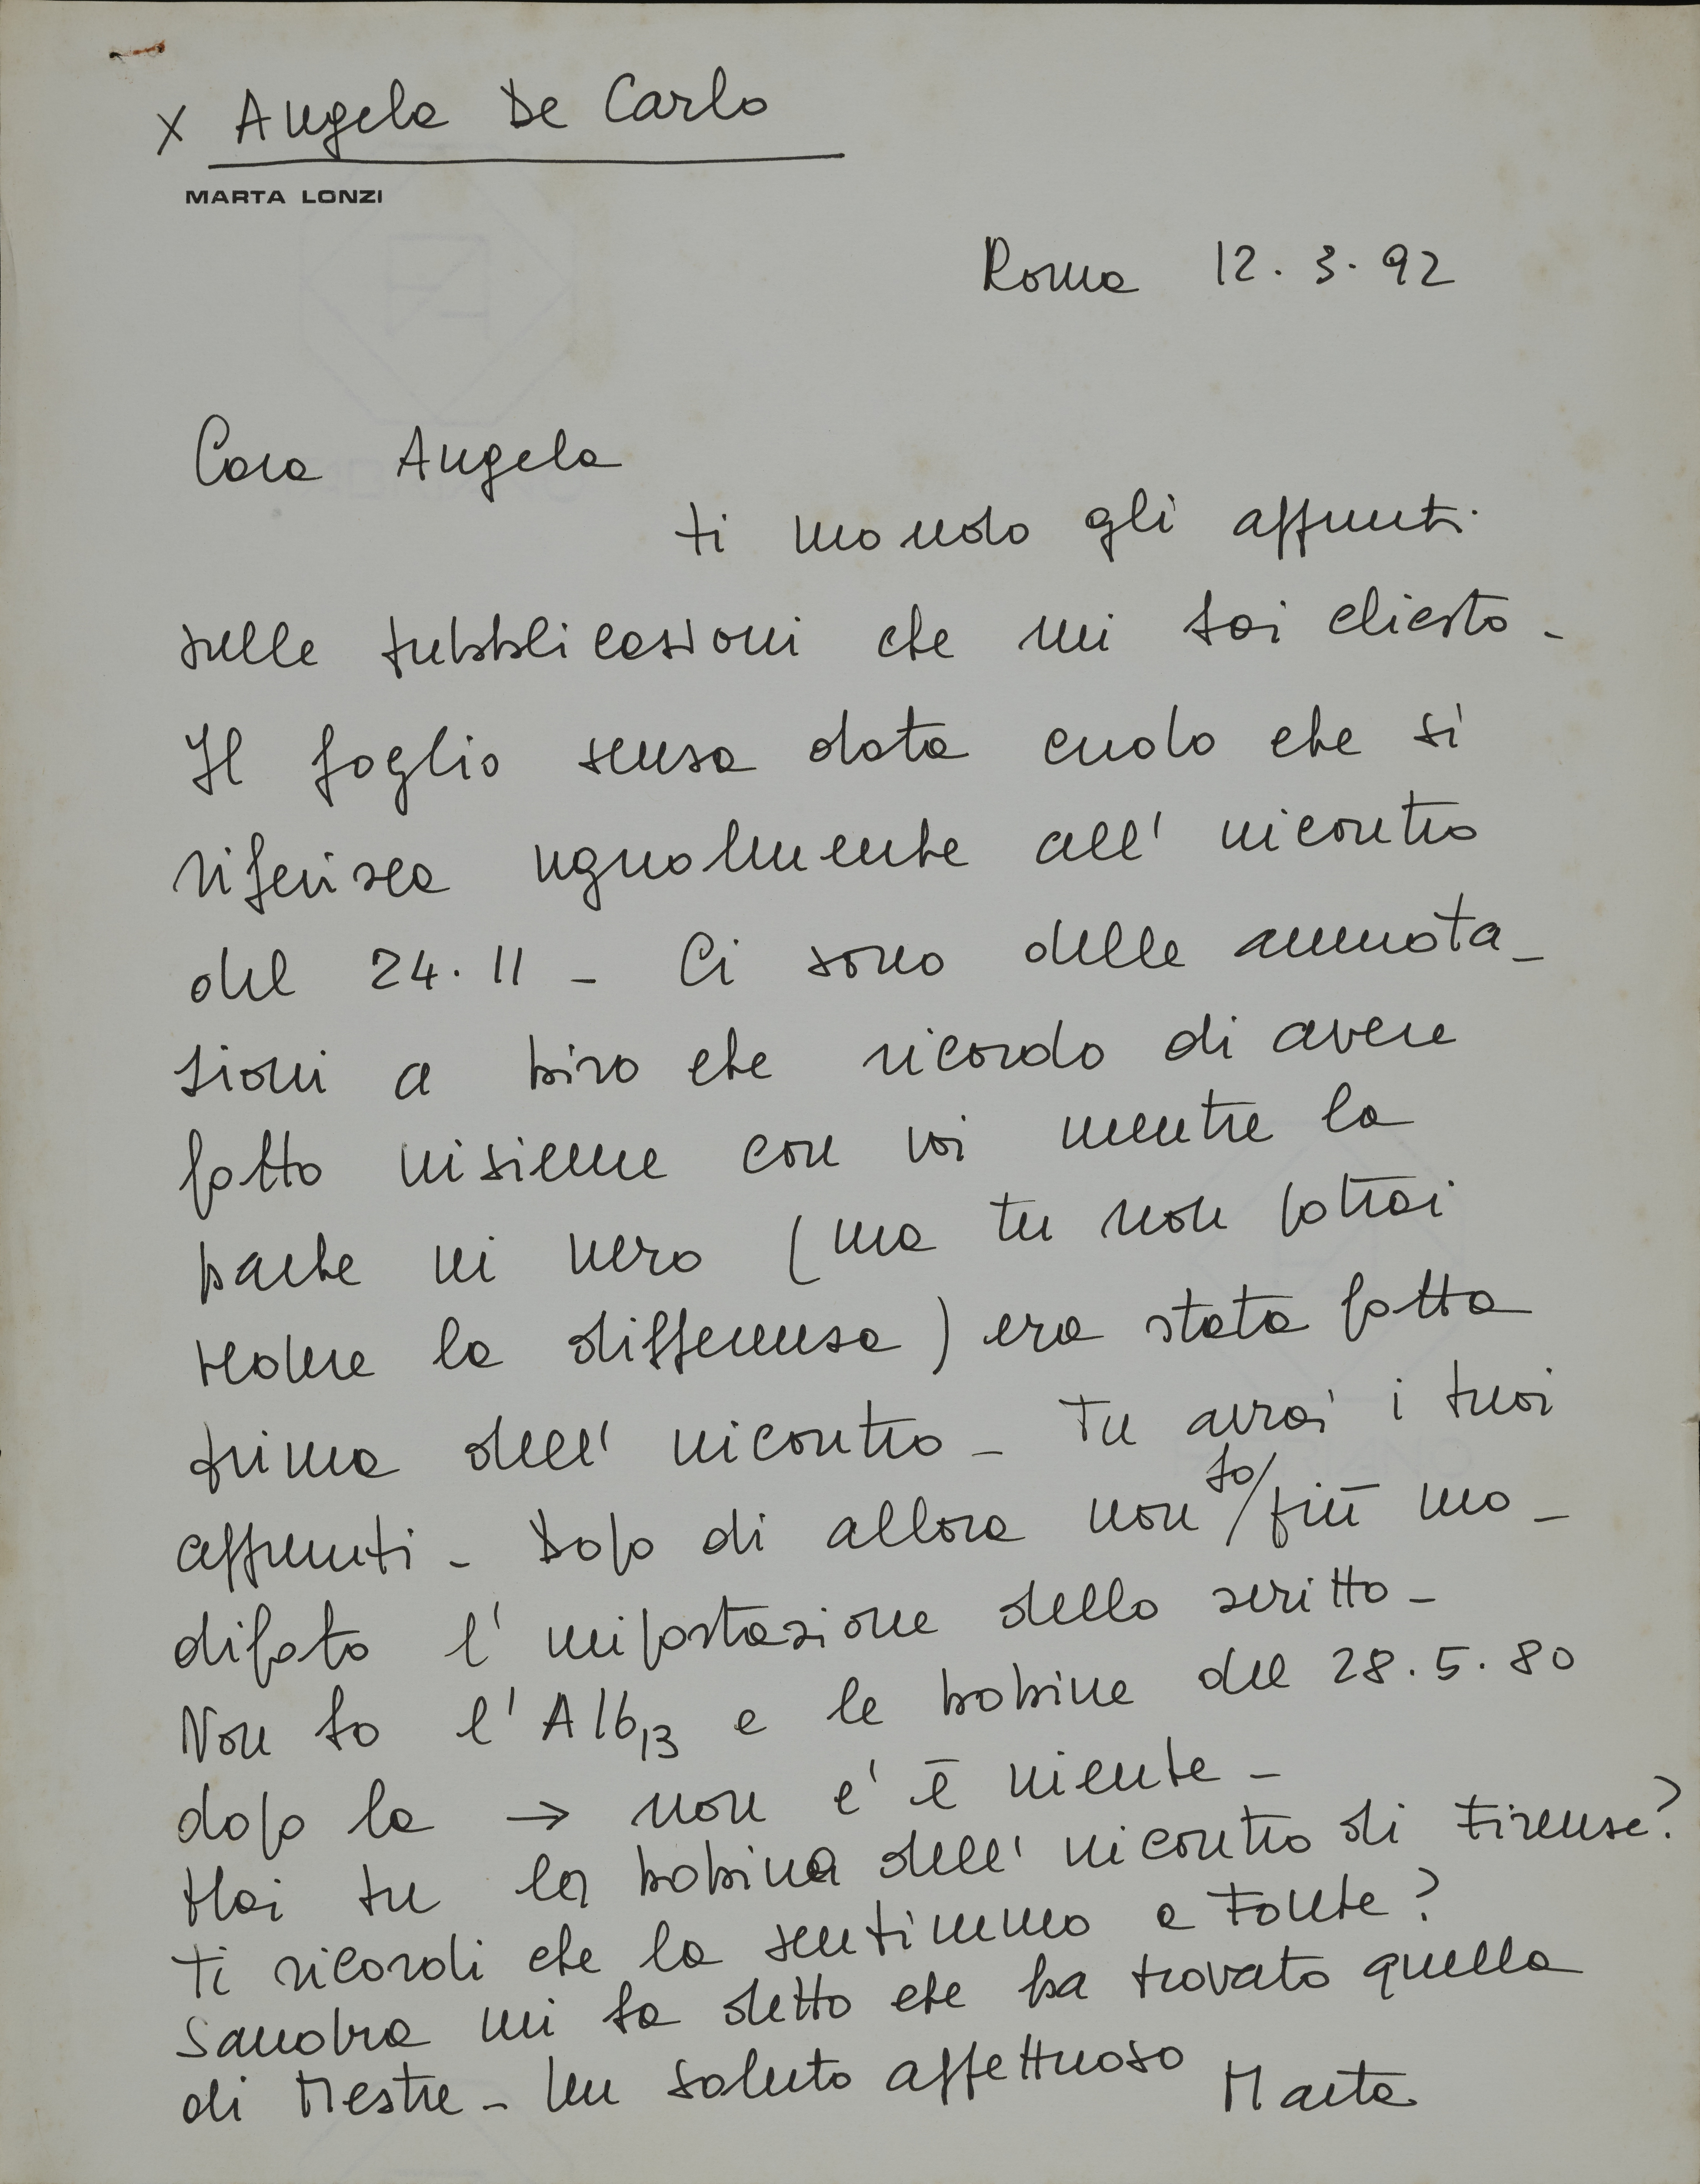 x Angela De Carlo
MARTA LONZI
Roma 12.3.92
Cara Angela
ti mando gli appunti
sulle pubblicazioni che mi hai chiesto -
Il foglio senza data credo che si
riferisca ugualmente all'incontro
del 24.11 - Ci sono delle annota-
zioni a biro che ricordo di avere
fatto insieme con voi mentre la
parte in nero (ma tu non potrai
vedere la differenza) era stata fatta
prima dell'incontro - Tu avrai i tuoi
appunti - Dopo di allora non ho/ più mo-
dificato l'impostazione dello scritto -
Non ho l'A16,13 e le bobine del 28.5.80
dopo la → non c'è niente -
Hai tu la bobina dell'incontro di Firenze?
Ti ricordi che la sentimmo a Fonte?
Sandra mi ha detto che ha trovato quella
di Mestre - Un saluto affettuoso Marta